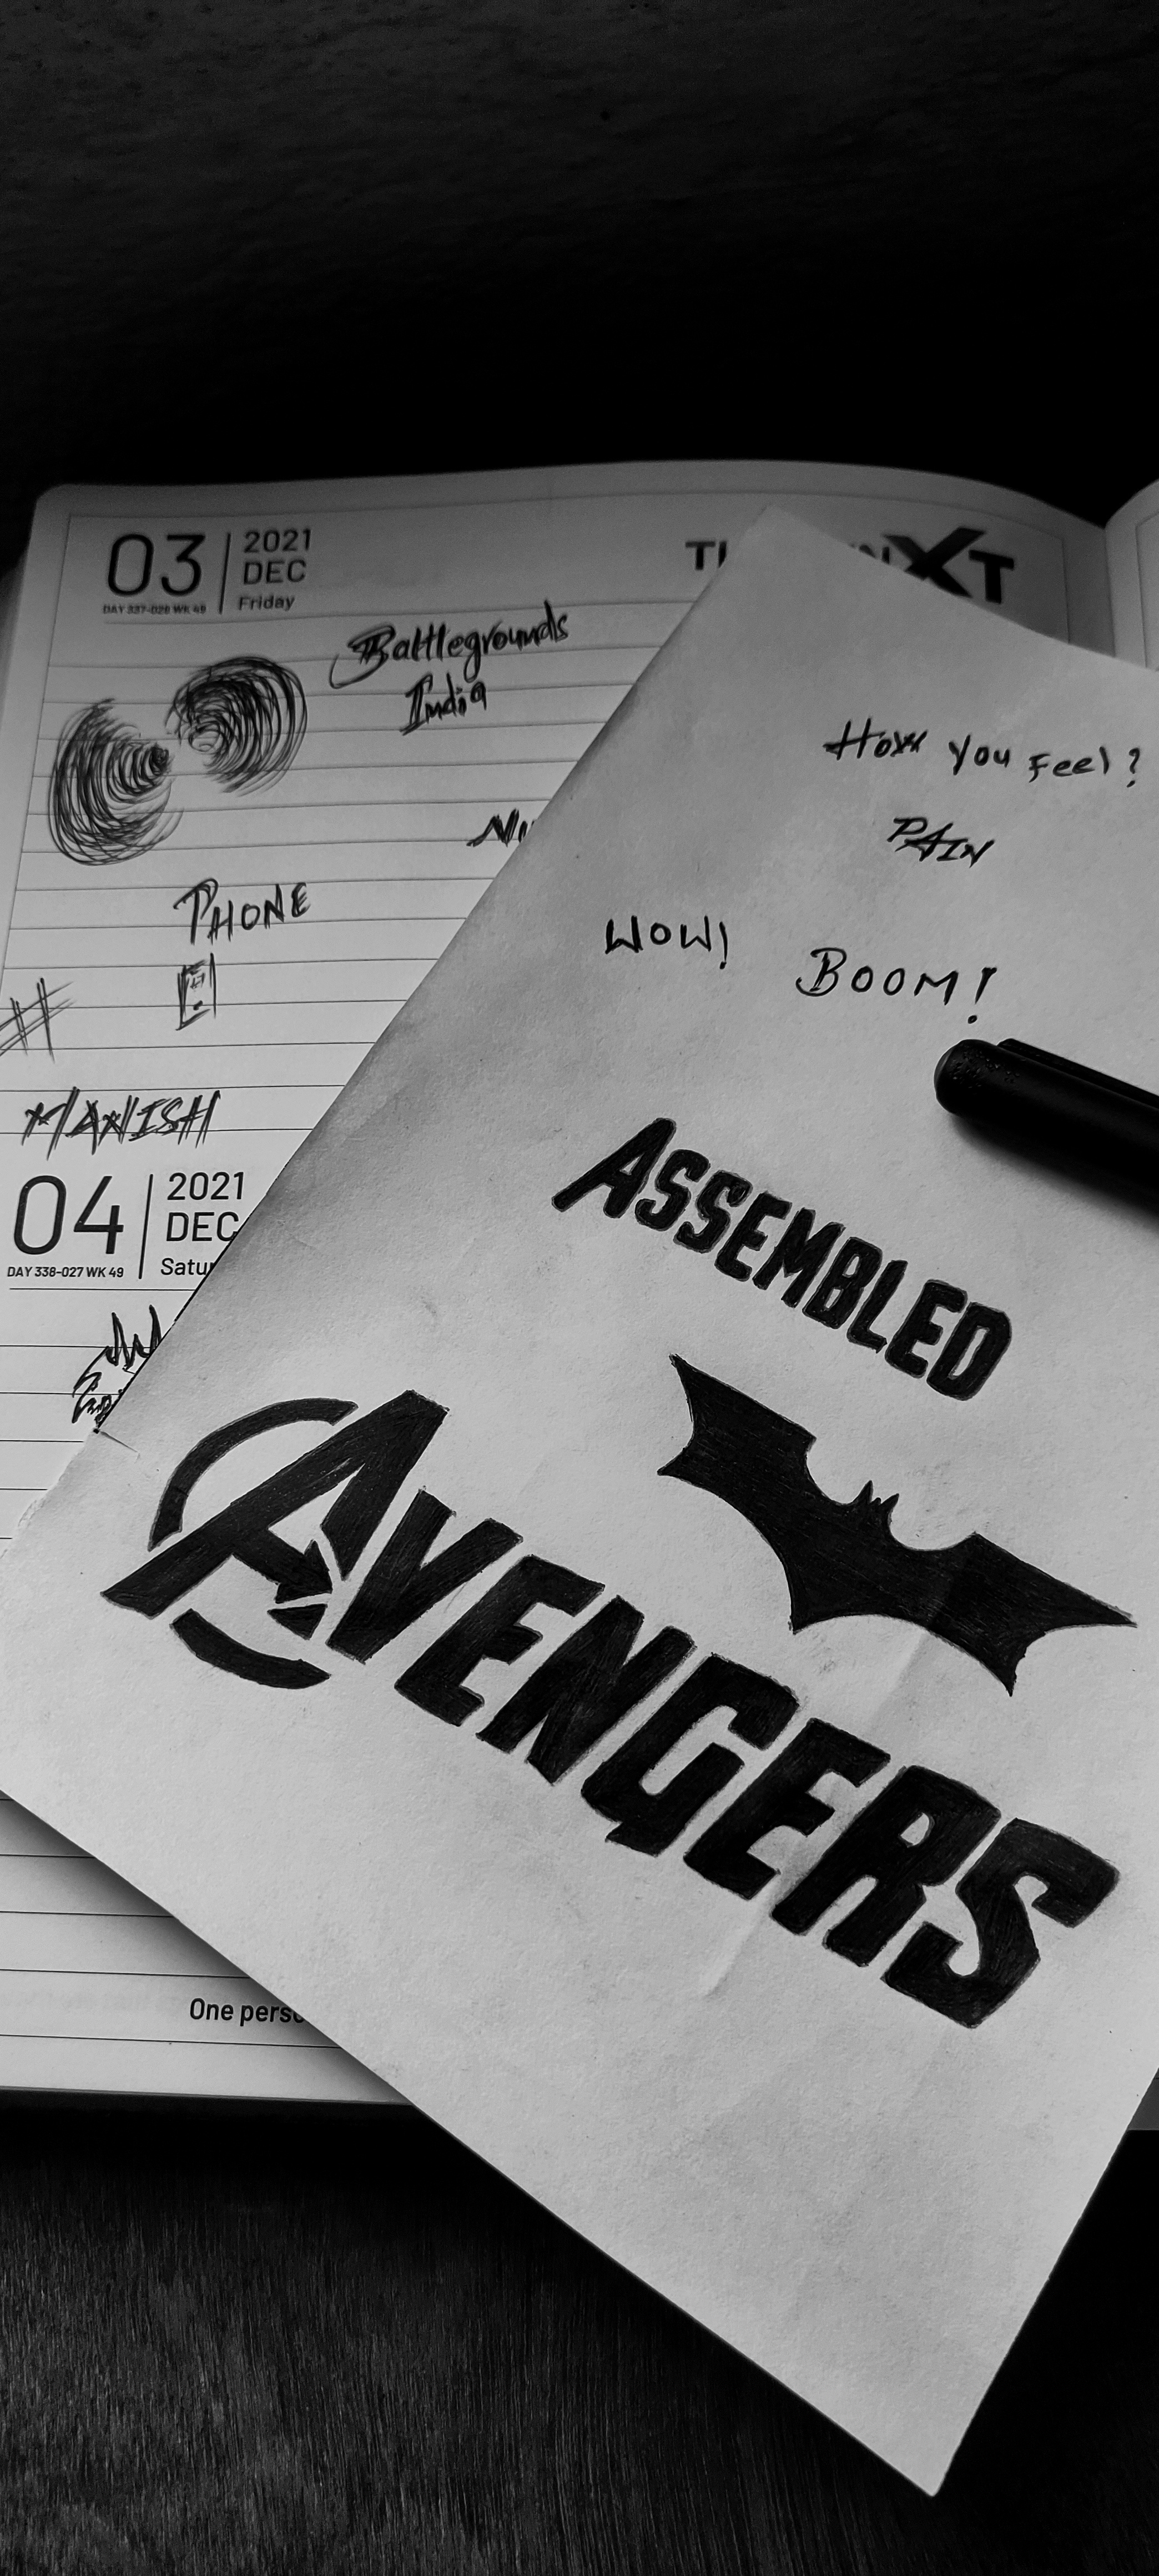 03
2021
DEC
DAY 337-028 WK 49
Friday
XT
Battlegrounds
India
PHONE
#
MANISH
04
2021
DEC
DAY 338-027 WK 49
One
How you Feel?
PAIN
WOW! BOOM!
ASSEMBLED
AVENGERS